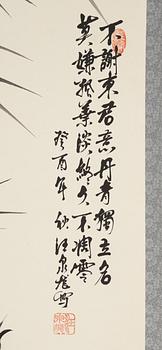 不謝東君意丹青獨立名
莫嫌孤葉淡終久不凋零
癸酉年秋汪泉